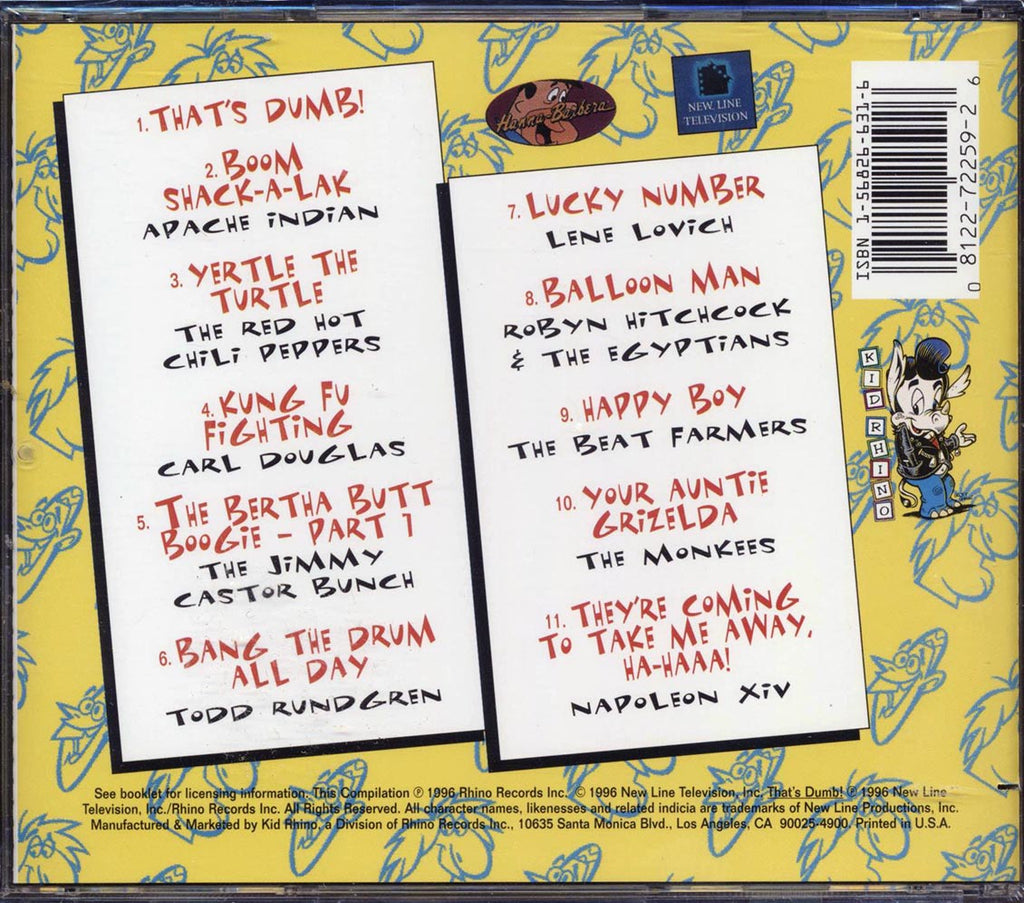 1. THAT'S DUMB!
2. BOOM
SHACK-A-LAK
APACHE INDIAN
3. YERTLE THE
TURTLE
THE RED HOT
CHILI PEPPERS
4. KUNG FU
FIGHTING
CARL DOUGLAS
5. THE BERTHA BUTT
BOOGIE - PART 1
THE JIMMY
CASTOR BUNCH
6. BANG THE DRUM
ALL DAY
TODD RUNDGREN
Hanna-Barbera
NEW LINE
TELEVISION
7. LUCKY NUMBER
LENE LOVICH
8. BALLOON MAN
ROBYN HITCHCOCK
& THE EGYPTIANS
9. HAPPY BOY
THE BEAT FARMERS
10. YOUR AUNTIE
GRIZELDA
THE MONKEES
11. THEY'RE COMING
TO TAKE ME AWAY,
HA-HAAA!
NAPOLEON XIV
ISBN 1-56826-631-6
0 81122-72259-2 6
KID RHINO
See booklet for licensing information. This Compilation ℗ 1996 Rhino Records Inc. © 1996 New Line Television, Inc. That's Dumb! ℗ 1996 New Line
Television, Inc./Rhino Records Inc. All Rights Reserved. All character names, likenesses and related indicia are trademarks of New Line Productions, Inc.
Manufactured & Marketed by Kid Rhino, a Division of Rhino Records Inc., 10635 Santa Monica Blvd., Los Angeles, CA 90025-4900. Printed in U.S.A.